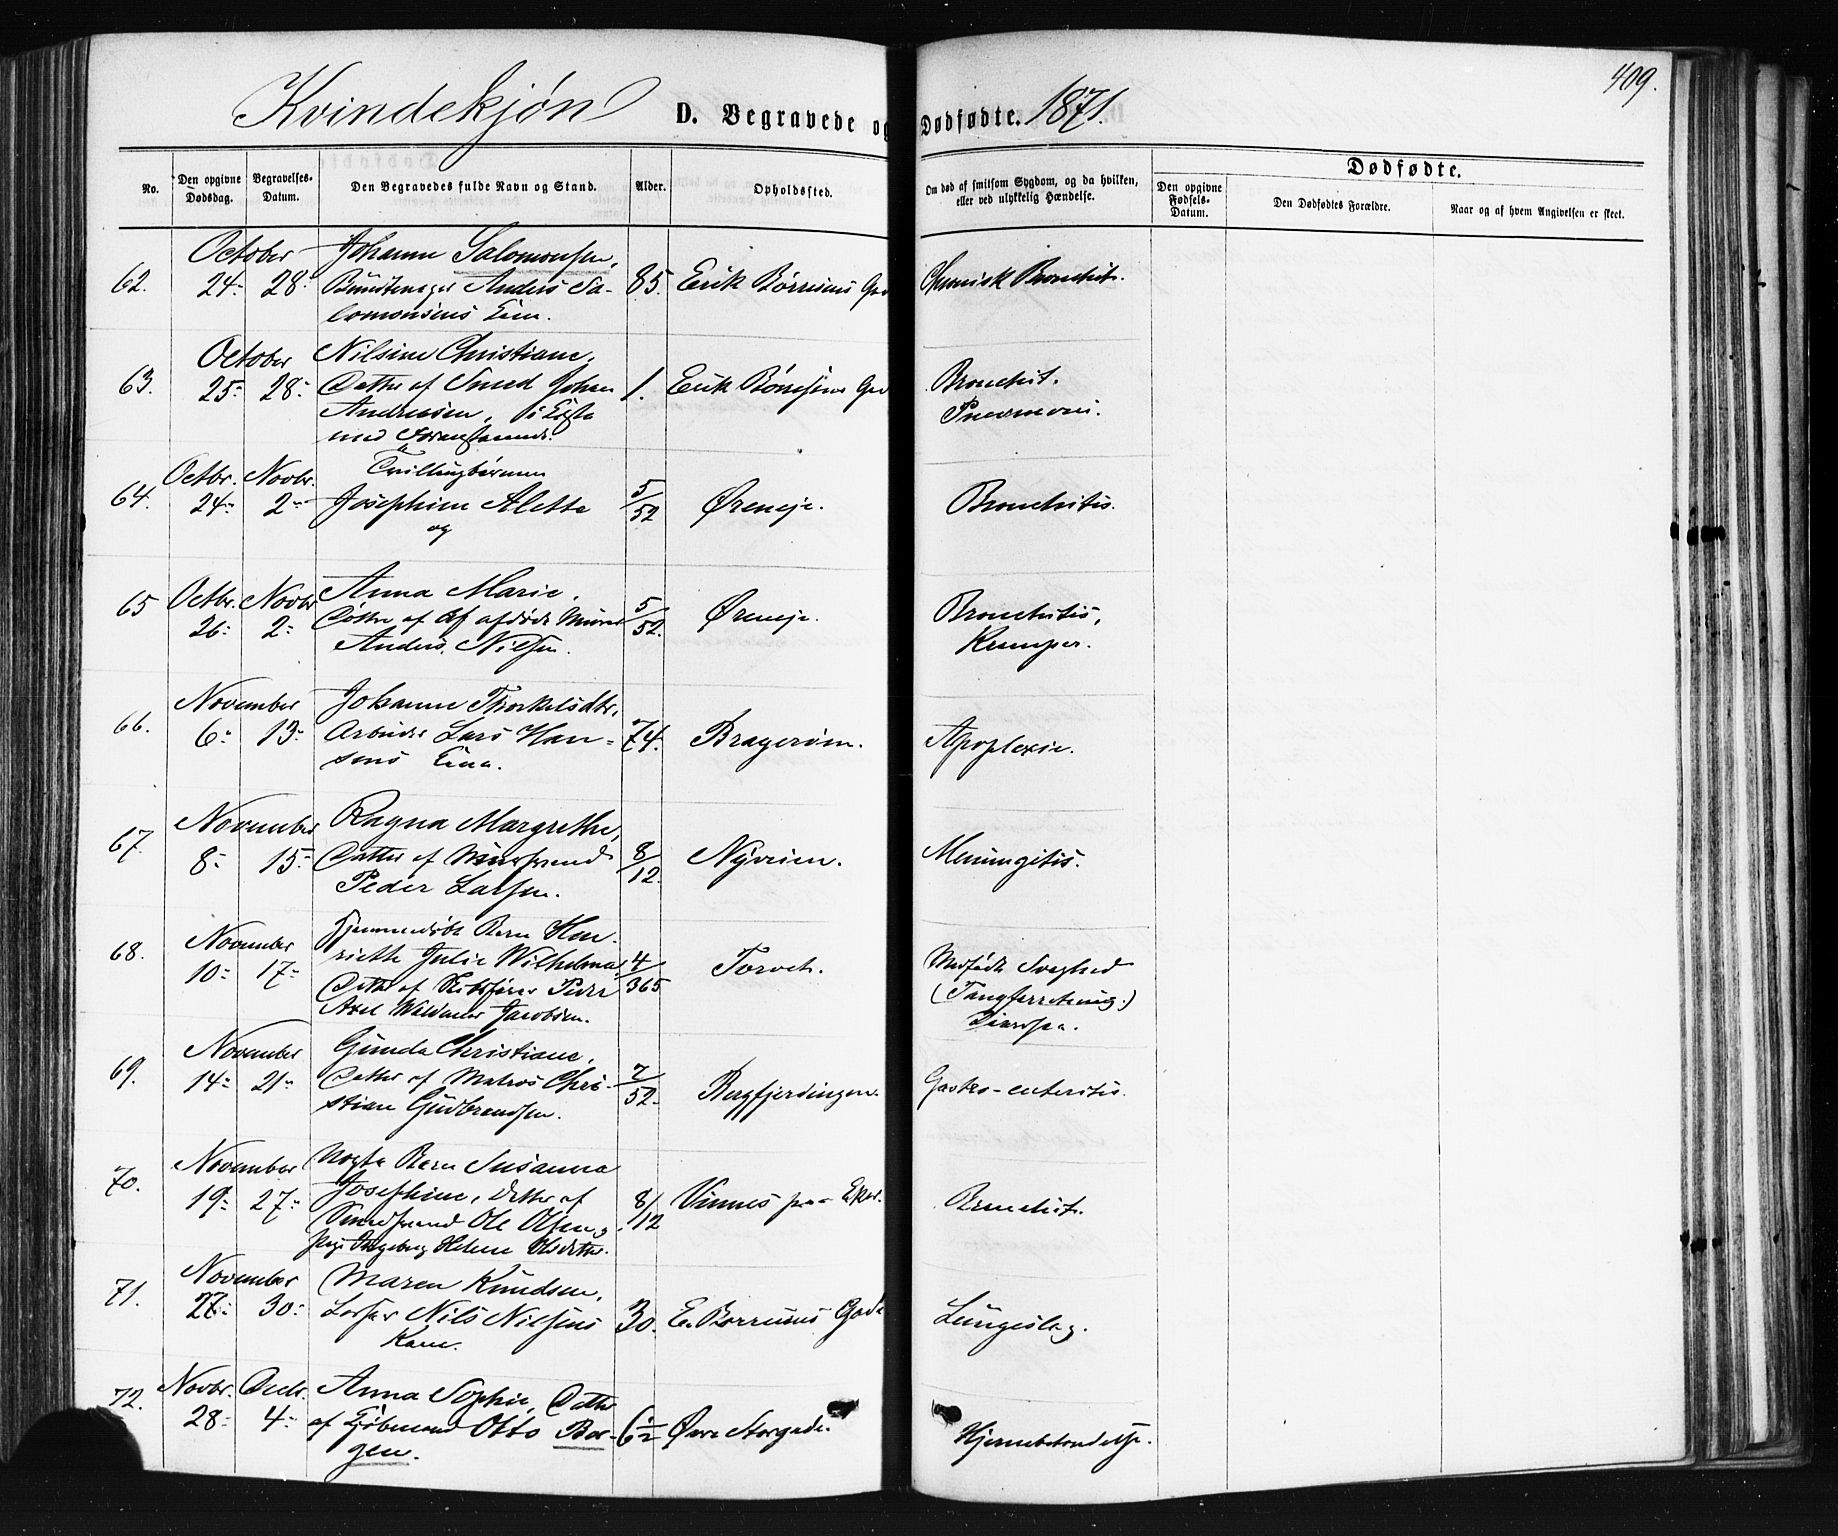 409.
Kvindekjøn D. Begravede og Dødfødte. 1871.
No. Den opgivne Dødsdag. Begravelses-Datum. Den Begravedes fulde Navn og Stand. Alder. Opholdssted. Om død af smitsom Sygdom, og da hvilken, eller ved ulykkelig Hændelse. Dødfødte.
Den opgivne Fødsels-Datum. Den Dødfødtes Forældre. Naar og af hvem Angivelsen er skeet.
October Johanne Salomonsen,
62. 24- 28- Anders Sa- 85. Erik Børresens Chronisk Bronchit.
lomonsens
October Nilsine Christiane,
63. 25- 28- Datter af Smed Johan 1. Erik Børresens Bronchit.
Andreasen, i Kiste Pneumoni.
med Foranstaaende.
Octbr. Novbr. Tvillingbørnene
64. 24- 2- Josephine Aletta 5/52 Øreneje. Bronchitis.
og
65 Octbr. Novbr Anna Marie, 5/52. Øreneje. Bronchitis,
26- 2- Døttre af afdøde Murer Kramper.
Anders Nilsen.
November Johanne Thorkelsdtr,
66. 6- 13- Arbeider Lars Han- 74. Bragerøen. Apoplexie.
sens Enke.
November Ragna Margrethe,
67. 8- 15- Datter af 8/12. Nyveien. Meningitis.
Peder Larsen.
November Hjemmedøbt Barn Hen-
68. 10- 17- riette Julie Wilhelmine, 4/365 Torvet. Medfødt Svaghed
Datter af Skibsfører Peder (Tangforretning.)
Axel Waldemar Jacobsen. Diarrhea.
November Gunda Christiane,
69. 14- 21- Datter af Matros Chri- 7/52. Bergfjerdingen. Gastro-enteritis.
stian Gudbrandsen.
November Uægte Barn Susanna
70. 19- 27- Josephine, Datter af 8/12 Vinnes paa Eker. Bronchit.
Smedsvend Ole Olsen og
Pige Ingeborg Helene Olsdatter.
November Maren Knudsen,
71. 27- 30- Losser Nils Nilsens 30. E. Børresens Gade Lungeslag.
Kone.
72. Novbr. Decbr. Anna Sophie, Datter
28- 4- af Kjøbmand Otto Bor- 6½ Øvre Storgade. Hjernebetændelse.
gen.